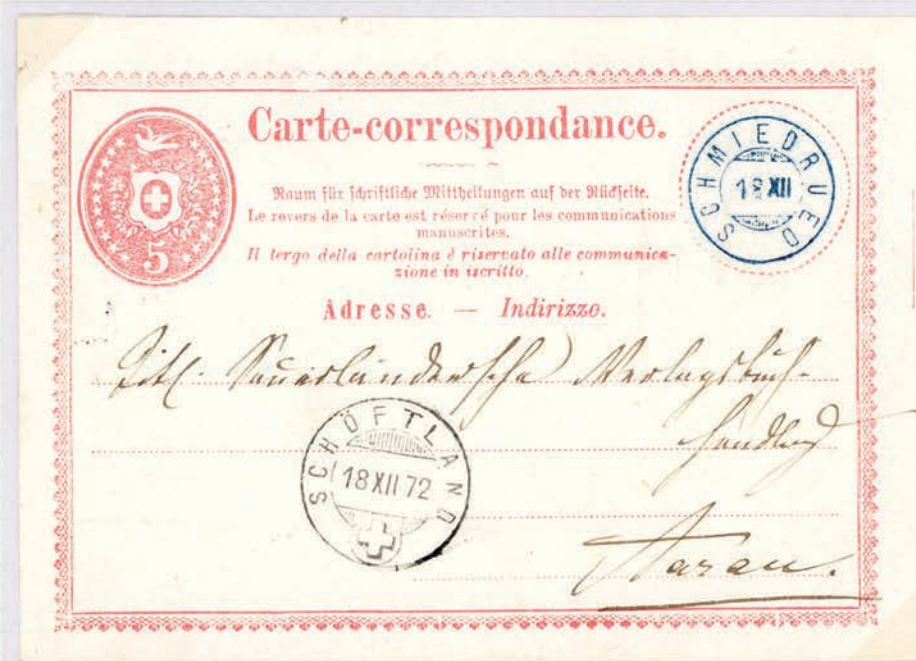 Carte-correspondance.
Raum für schriftliche Mittheilungen auf der Rückseite.
Le revers de la carte est réservé pour les communications
manuscrites.
Il tergo della cartolina é riservato alle communica-
zione in iscritto.
5
SCHMIEDRUED
18 XII
Adresse. — Indirizzo.
Titl. Sauerländersche Verlagsbuch-
handlg
SCHÖFTLAND
18 XII 72
Aarau.